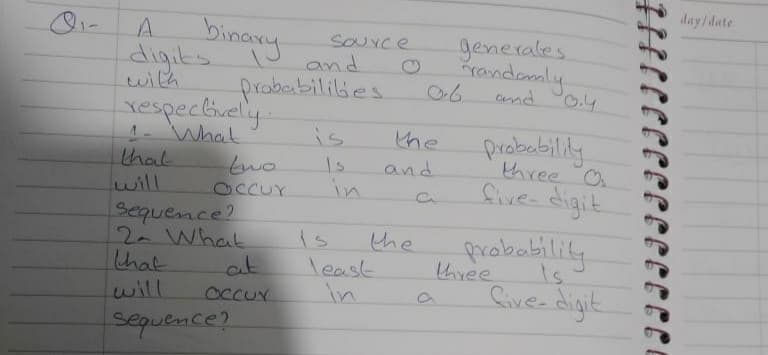 Q1- A binary source generates
digits 1 and 0 randomly
with probabilities 0.6 and 0.4
respectively.
1- What is the probability
that two 1s and three 0s
will occur in a five-digit
sequence?
2- What is the probability
that at least three 1s
will occur in a five-digit
sequence?
day/date